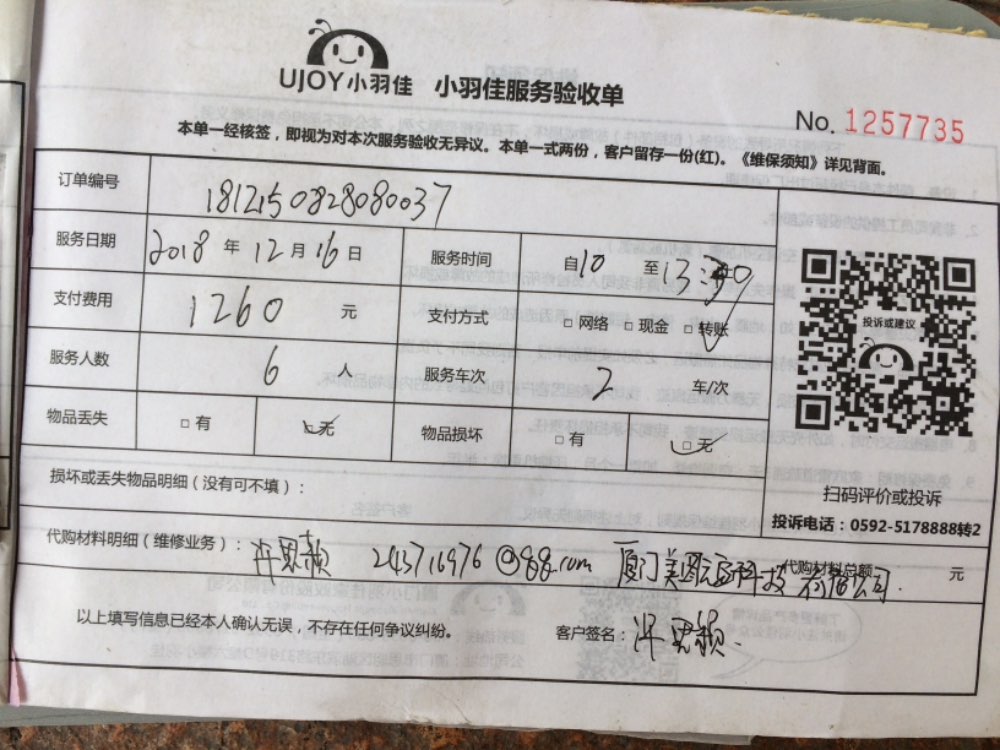 UJOY小羽佳 小羽佳服务验收单
No. 1257735
本单一经核签，即视为对本次服务验收无异议。本单一式两份，客户留存一份(红)。《维保须知》详见背面。
订单编号 181215082808080037
服务日期 2018 年 12 月 16 日 服务时间 自10 至13
支付费用 1260 元 支付方式 □ 网络 □ 现金 □ 转账
投诉或建议
服务人数 6 人 服务车次 2 车/次
物品丢失 □ 有 □ 无 物品损坏 □ 有 □ 无
损坏或丢失物品明细（没有可不填）：
扫码评价或投诉
投诉电话：0592-5178888转2
代购材料明细（维修业务）： 许思颖 243716976@qq.com 厦门美图 科技有限公司 代购材料总额 元
以上填写信息已经本人确认无误，不存在任何争议纠纷。 客户签名： 许思颖